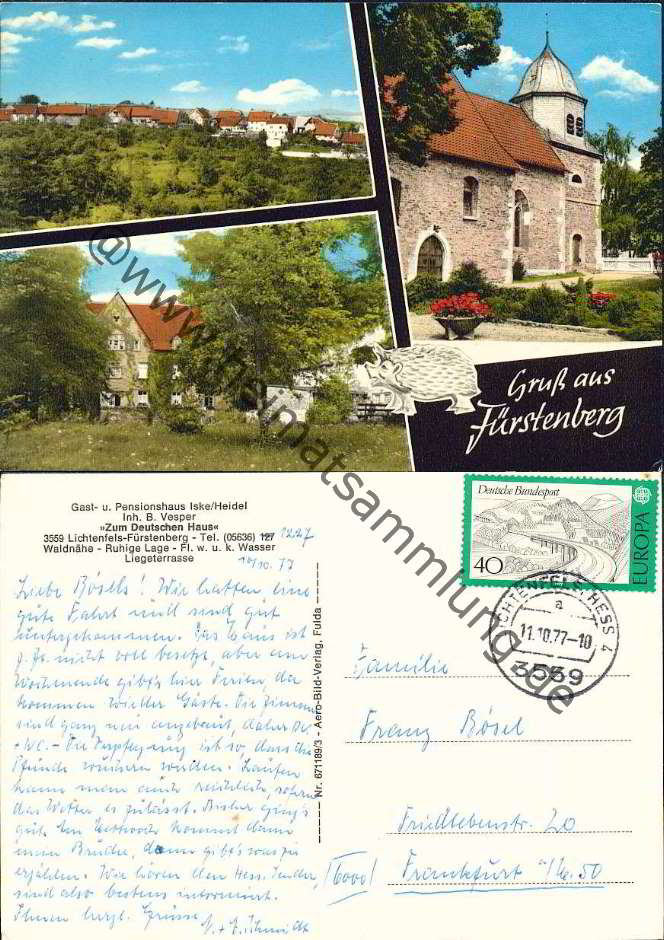 Gruß aus
Fürstenberg
@www.heimatsammlung.de
Gast- u. Pensionshaus Iske/Heidel
Inh. B. Vesper
»Zum Deutschen Haus«
3559 Lichtenfels-Fürstenberg - Tel. (05636) 127 1227
Waldnähe - Ruhige Lage - Fl. w. u. k. Wasser
Liegeterrasse
10/10. 77
Liebe Bösels! Wir hatten eine
gute Fahrt und sind gut
untergekommen. Das Haus ist
z. Zt. nicht voll besetzt, aber am
Wochenende gibt's hier Ferien, da
kommen wieder Gäste. Die Zimmer
sind ganz neu angebaut, daher
WC. - Die Verpflegung ist so, dass die
Pfunde wachsen werden. Laufen
kann man auch reichlich, sofern
das Wetter es zulässt. Bisher ging's
gut. Am Mittwoch kommt dann
mein Bruder, dann gibt's was zu
erzählen. Wir hören den Hess. Sender,
sind also bestens informiert.
Ihnen herzl. Grüsse
Schmidt
Nr. 671189/3 - Aero-Bild-Verlag, Fulda
Deutsche Bundespost
40
EUROPA
CEPT
LICHTENFELS, HESS 4
a
11.10.77-10
3559
Familie
Franz Bösel
Friedlebenstr. 20
(6000) Frankfurt a/M. 50